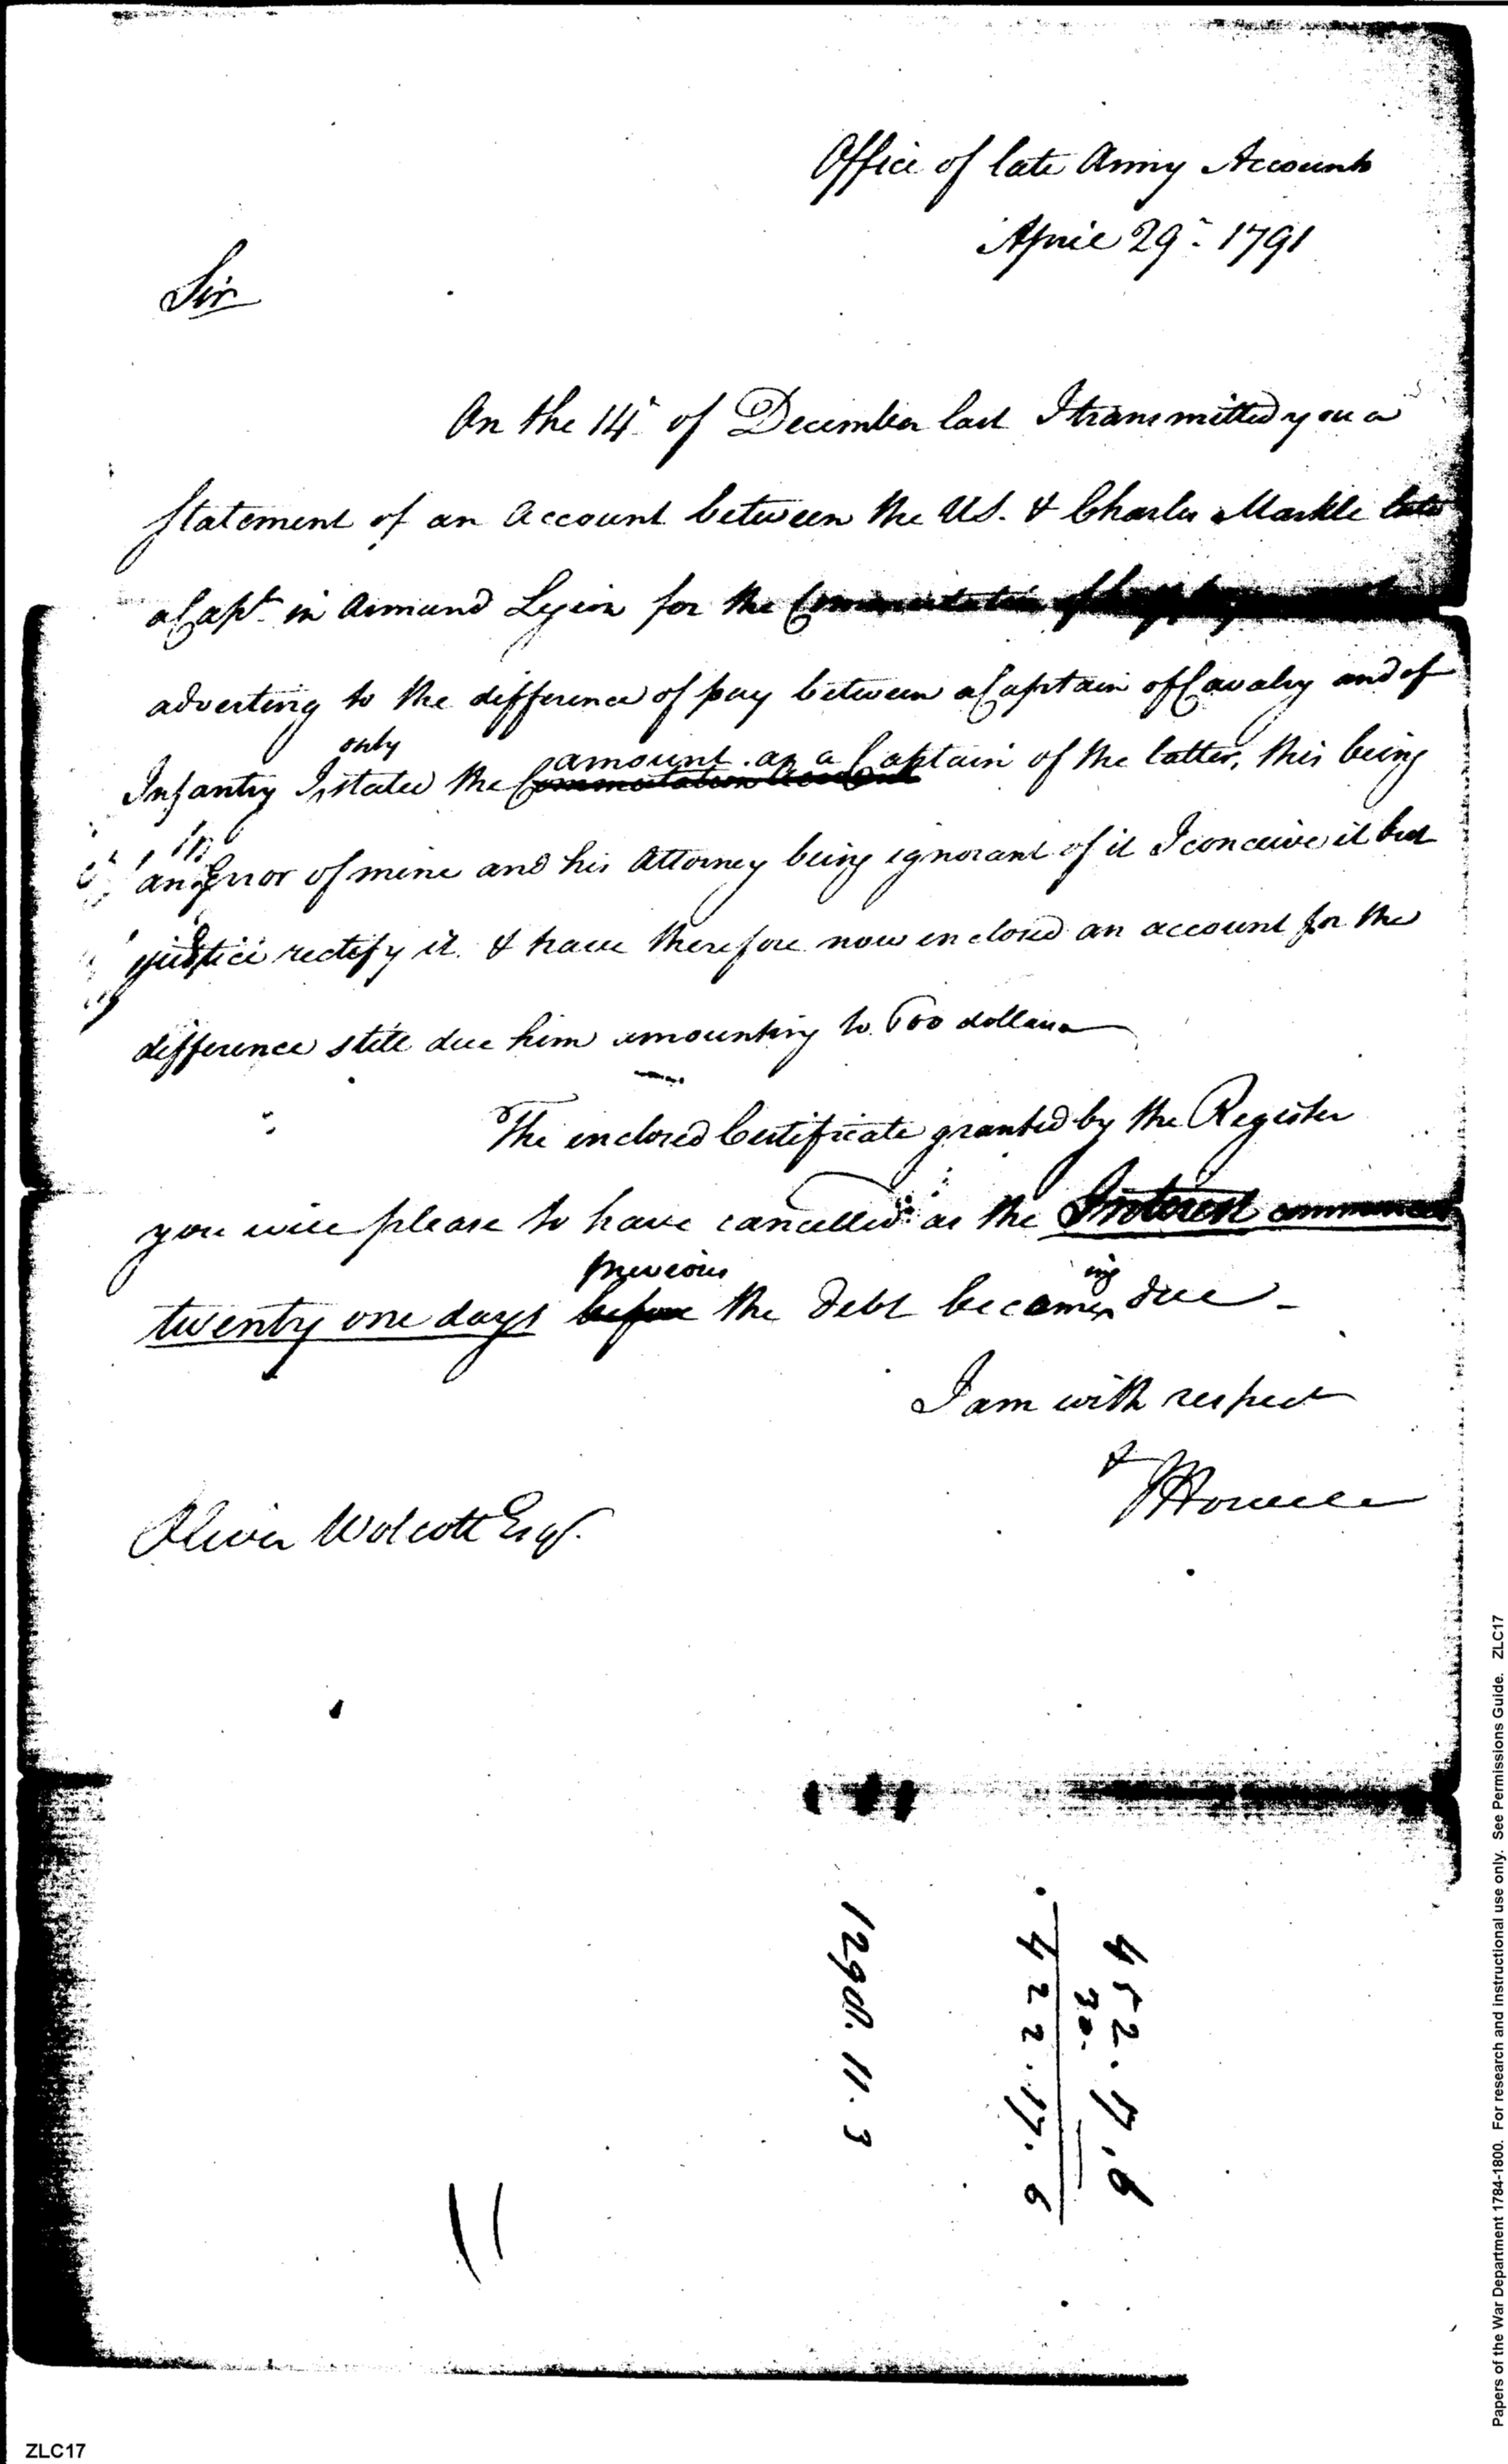 Office of late Army Accounts
April 29. 1791
Sir
On the 14 of December last I transmitted you a
statement of an Account between the US. & Charles Markle late
a Capt. in Armand Legion for the Commutation of
adverting to the difference of pay between a Captain of Cavalry and of
only
amount as a Captain of the latter, this being
Infantry I stated the Commutation
an Error of mine and his Attorney being ignorant of it I conceive it but
justice rectify it. & have therefore now enclosed an account for the
difference still due him amounting to 600 dollars
The enclosed Certificate granted by the Register
you will please to have cancelled as the Interest commences
previous ing
twenty one days before the debt becomes due -
I am with respect
&
JHowell
Oliver Wolcott Esqr.
452.17.6
30.
422.17.6
129d. 11.3
Papers of the War Department 1784-1800. For research and instructional use only. See Permissions Guide. ZLC17
ZLC17